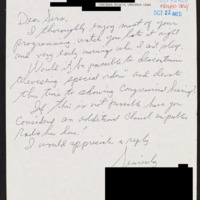 OCT 22 REC'D
Dear Sirs,
I thoroughly enjoy most of your
programing, watch you late at night
and very early mornings when I can't sleep.
Would it be possible to discontinue
"viewing special orders" and devote
this time to showing Congressional hearings?
If this is not possible have you
considered an additional Channel on public
Radio for here?
I would appreciate a reply
Sincerely